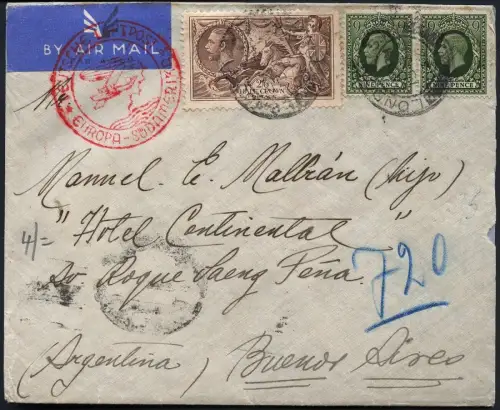 BY AIR MAIL
EUROPA - SÜDAMERIKA
NINEPENCE
NINEPENCE
LON
Manuel E. Malbrán (hijo)
"Hotel Continental"
4/=
Roque Saenz Peña.
720
(Argentina) Buenos Aires